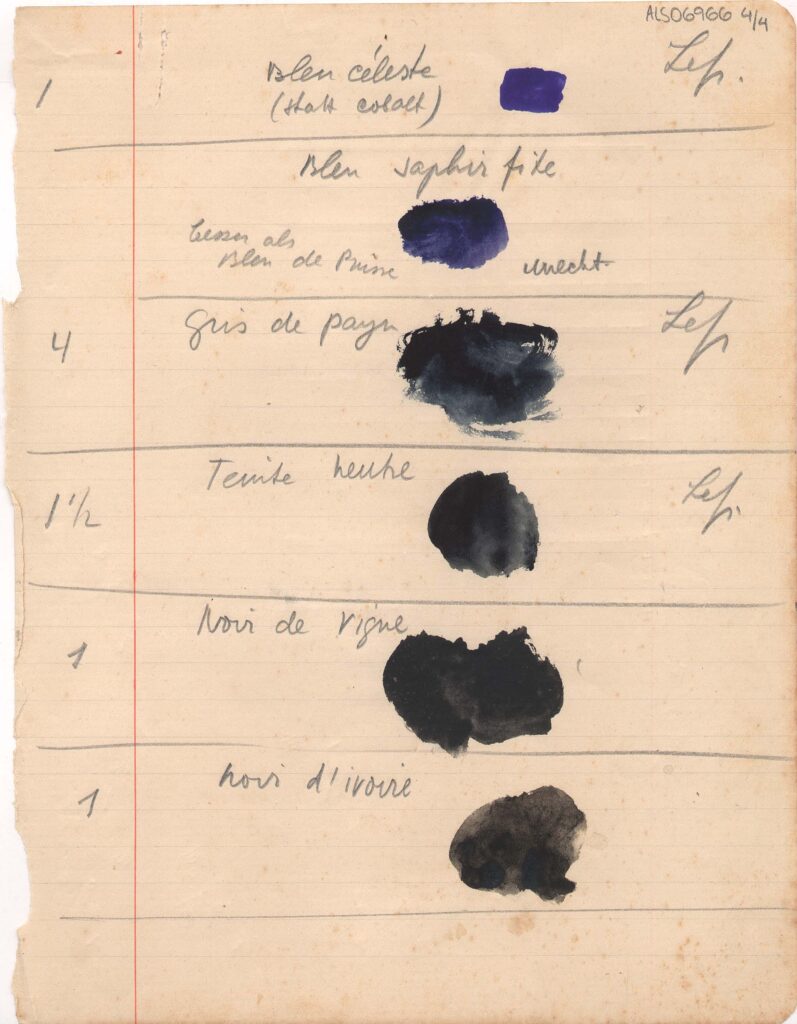 ALS06966 4/4
1 Bleu céleste Lef.
(statt cobalt)
Bleu saphir fixe
besser als
Bleu de Prusse unecht.
4 Gris de payn Lef.
1 1/2 Teinte neutre Lef.
1 Noir de vigne
1 noir d'ivoire